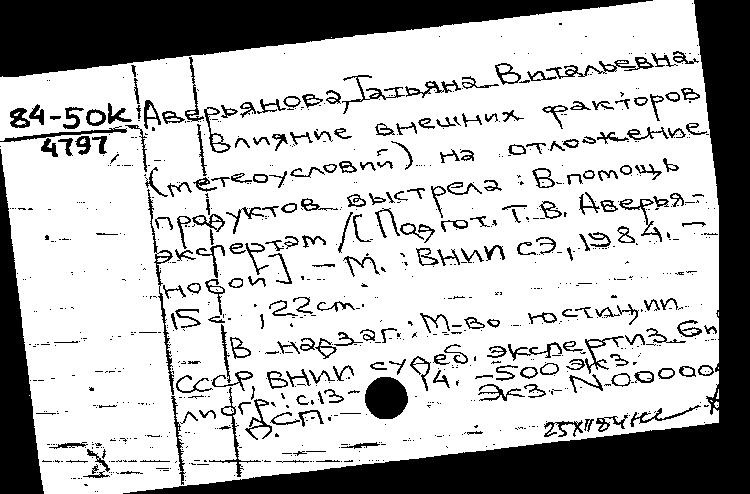 84-50К
4797
Аверьянова, Татьяна Витальевна.
Влияние внешних факторов
(метеоусловий) на отложение
продуктов выстрела : В помощь
экспертам / [Подгот. Т. В. Аверья-
новой]. – М. : ВНИИ СЭ, 1984. –
15 с. ; 22 см.
В надзаг.: М-во юстиции
СССР, ВНИИ судеб. экспертиз. Би
лиогр.: с. 13-14. – 500 экз.
ДСП. – Экз. N 00000
25 XII 84